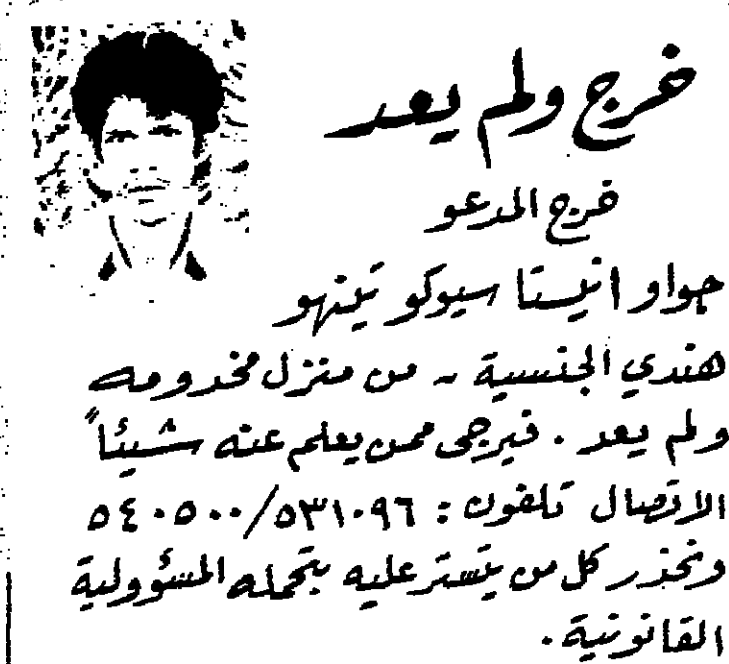 خرج ولم يعد
خرج المدعو
جواو انيستا سيوكو تينهو
هندي الجنسية - من منزل مخدومه
ولم يعد . فيرجى ممن يعلم عنه شيئاً
الاتصال تلفون : ٥٣١٠٩٦/٥٤٠٥٠٠
ونحذر كل من يتستر عليه بتحمله المسؤولية
القانونية .